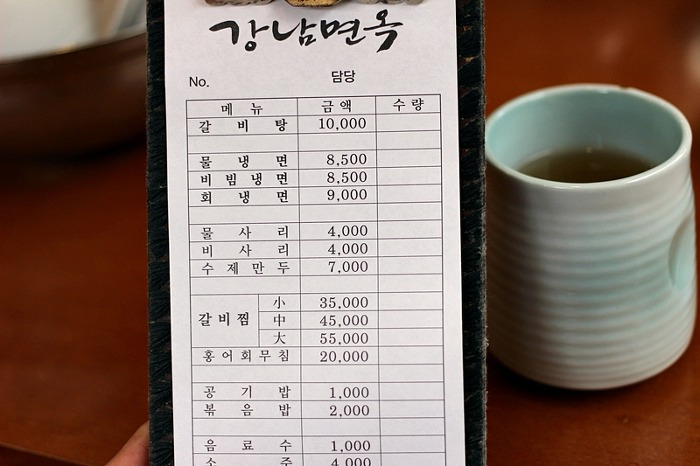 강남면옥
No. 담당
메뉴 금액 수량
갈비탕 10,000
물냉면 8,500
비빔냉면 8,500
회냉면 9,000
물사리 4,000
비사리 4,000
수제만두 7,000
갈비찜 小 35,000
中 45,000
大 55,000
홍어회무침 20,000
공기밥 1,000
볶음밥 2,000
음료수 1,000
소주 4,000